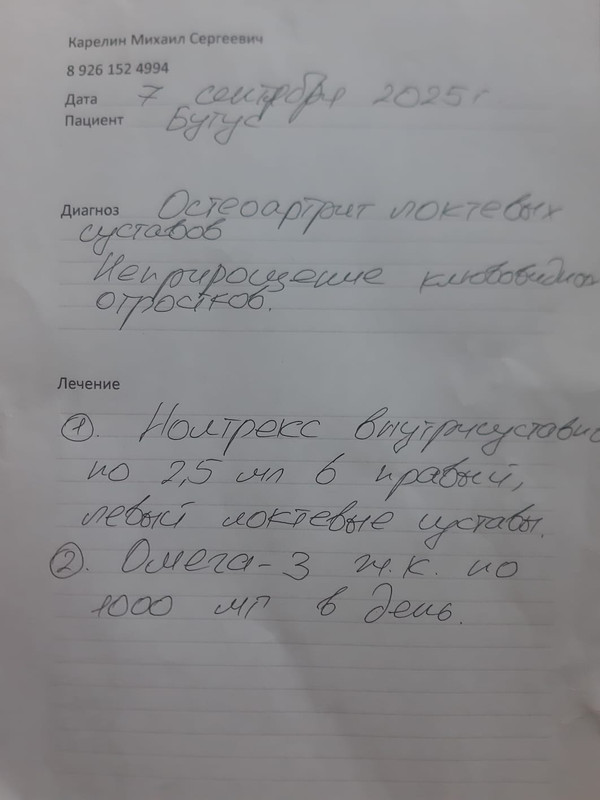 Карелин Михаил Сергеевич
8 926 152 4994
Дата 7 сентября 2025 г
Пациент Бутус
Диагноз Остеоартрит локтевых
суставов
Неприрощение клювовидных
отростков.
Лечение
1. Нолтрекс внутрисуставно
по 2,5 мл в правый,
левый локтевые суставы.
2. Омега-3 ж.к. по
1000 мг в день.